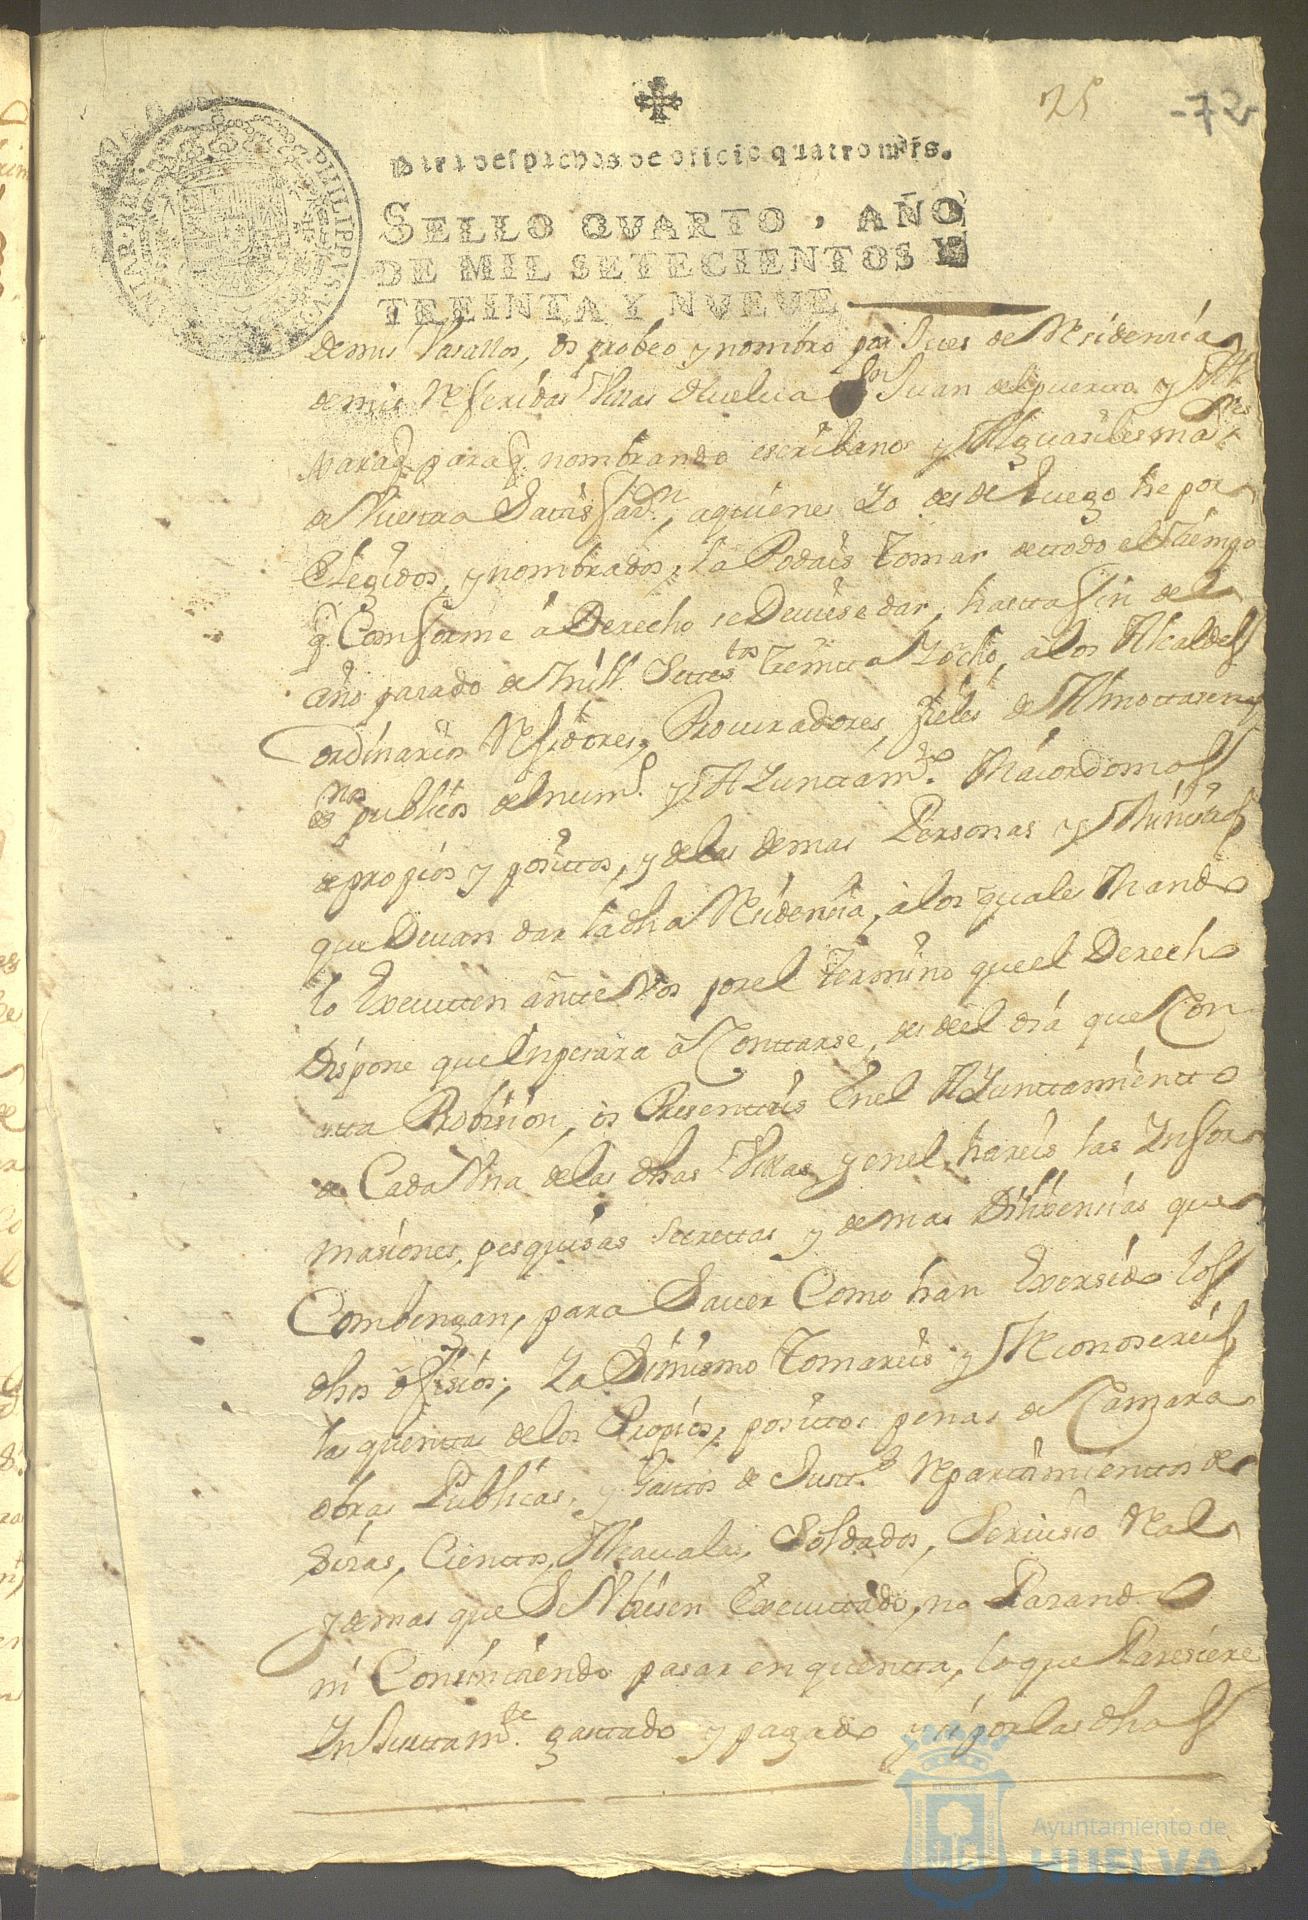 25
-72
Para despachos de oficio quatro mrs.
SELLO QVARTO, AÑO
DE MIL SETECIENTOS Y
TREINTA Y NVEVE
PHILIPPVS V D
de mis Vasallos, os probeo y nombro por Jues de Residencia
de mis Referidas Villas de Huelva Sn Juan del puerto y
para q nombrando escribanos y Alguasiles mares
a Vuestra Satisfasn, a quienes Yo desde Luego he por
Elegidos, y nombrados, la Podais Tomar de todo el Tiempo
q Conforme à Derecho se Deviese dar, hasta fin del
año pasado de mill Settestos Treinta Y ocho, à los Alcaldes
ordinarios Residores, Procuradores, fieles de Almottasen
esnos publicos del numo y Ayuntamto Maiordomos
de propios y positos, y de las demas Personas y Ministros
que Devan dar la dha Residencia, à los quales Mando
lo Executten antte Vos por el Termino que el Derecho
Dispone que Enpesara à Conttarse, desde el dia que Con
esta Probision, os Presenteis En el Ayunttamientto
de Cada Una de las dhas Villas y en el hareis las Infor
masiones, pesquisas secrettas y demas Dilixencias que
Combengan, para Saver Como han Exersido los
dhos ofisios; Ya Simismo Tomareis y Reconosereis
las quentas de los Propios, positos penas de Camara
obras Publicas, y Gastos de Justta Repartimienttos de
Sisas, Cienttos, Alcavalas, Soldados, Servisio Real
y demas que Se Ubiesen Executtado, no Pasando
ni Consintiendo pasar en quentta, lo que Paresiere
Injusttamte gastado y pagado y si por las dhas
Ayuntamiento de
HUELVA